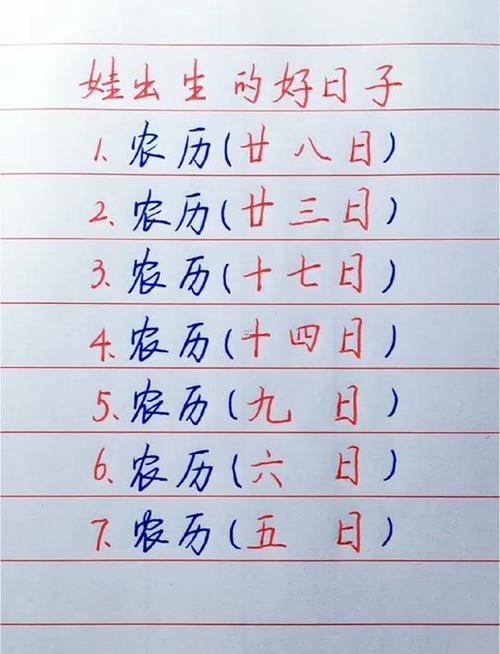 娃出生的好日子
1、农历(廿八日)
2、农历(廿三日)
3、农历(十七日)
4、农历(十四日)
5、农历(九 日)
6、农历(六 日)
7、农历(五 日)